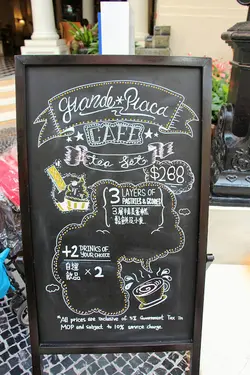 Grande Praça
CAFÉ
tea Set
$288
3 LAYERS OF
PASTRIES & SCONES
+2 DRINKS OF
YOUR CHOICE
自選
飲品 × 2
*All prices are exclusive of 5% Government Tax in
MOP and subject to 10% service charge.